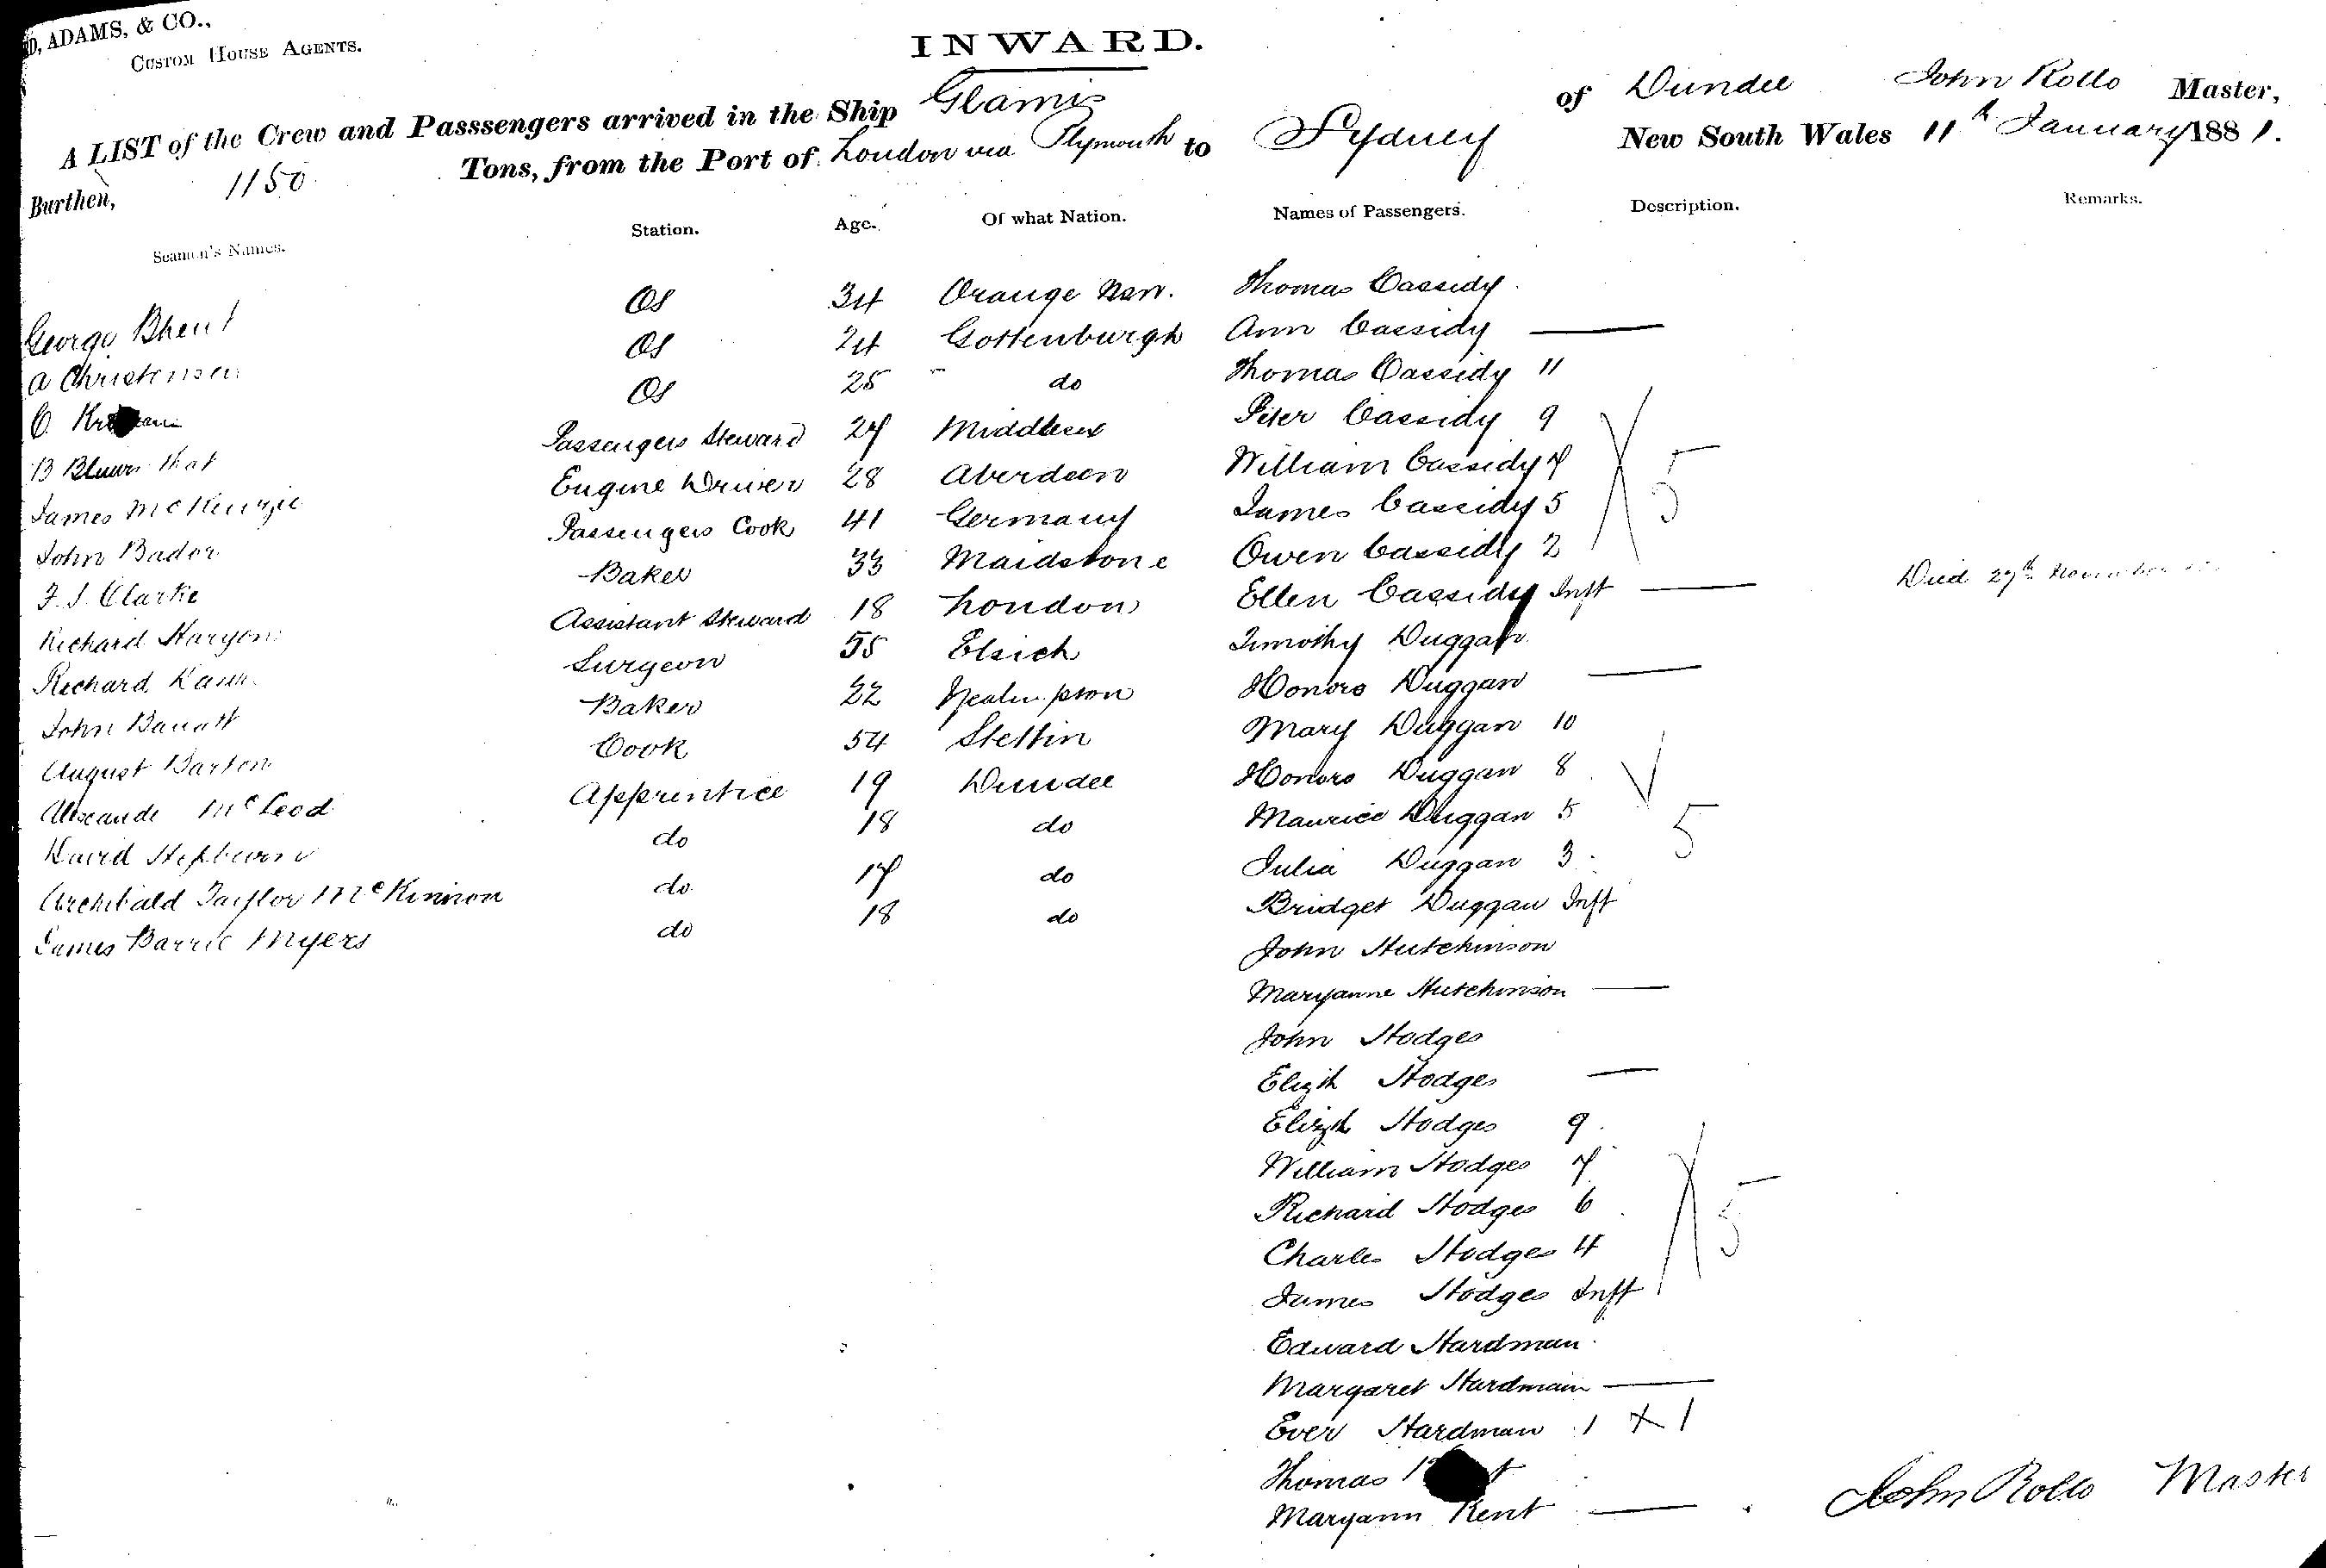 D, ADAMS, & CO.,
CUSTOM HOUSE AGENTS.
INWARD.
A LIST of the Crew and Passsengers arrived in the Ship Glamis of Dundee John Rollo Master,
Burthen, 1150 Tons, from the Port of London via Plymouth to Sydney New South Wales 11th January 1881.
Seamen's Names. Station. Age. Of what Nation. Names of Passengers. Description. Remarks.
George OS 34 Orange Thomas Cassidy
A Christensen OS 24 Gottenburgh Ann Cassidy
C. OS 25 do Thomas Cassidy 11
B Passengers Steward 27 Middlesex Peter Cassidy 9
James McKenzie Engine Driver 28 Aberdeen William Cassidy 7 5
John Bader Passengers Cook 41 Germany James Cassidy 5
F. J. Clarke Baker 33 Maidstone Owen Cassidy 2
Richard Assistant Steward 18 London Ellen Cassidy Inft Died 27th November
Richard Surgeon 55 Timothy Duggan
John Baker 22 Honora Duggan
August Barton Cook 54 Stettin Mary Duggan 10
McLeod Apprentice 19 Dundee Honora Duggan 8
David Hepburn do 18 do Maurice Duggan 5 5
Archibald Taylor McKinnon do 17 do Julia Duggan 3
James Barrie Myers do 18 do Bridget Duggan Inft
John Hutchinson
Maryanne Hutchinson
John Hodges
Elizth Hodges
Elizth Hodges 9
William Hodges 7
Richard Hodges 6 5
Charles Hodges 4
James Hodges Inft
Edward Hardman
Margaret Hardman
Ever Hardman 1 X 1
Thomas
Maryann Kent John Rollo Master